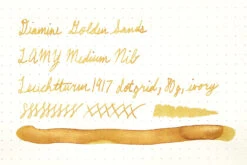 Diamine Golden Sands
LAMY Medium Nib
Leuchtturm 1917 dotgrid, 80g, ivory